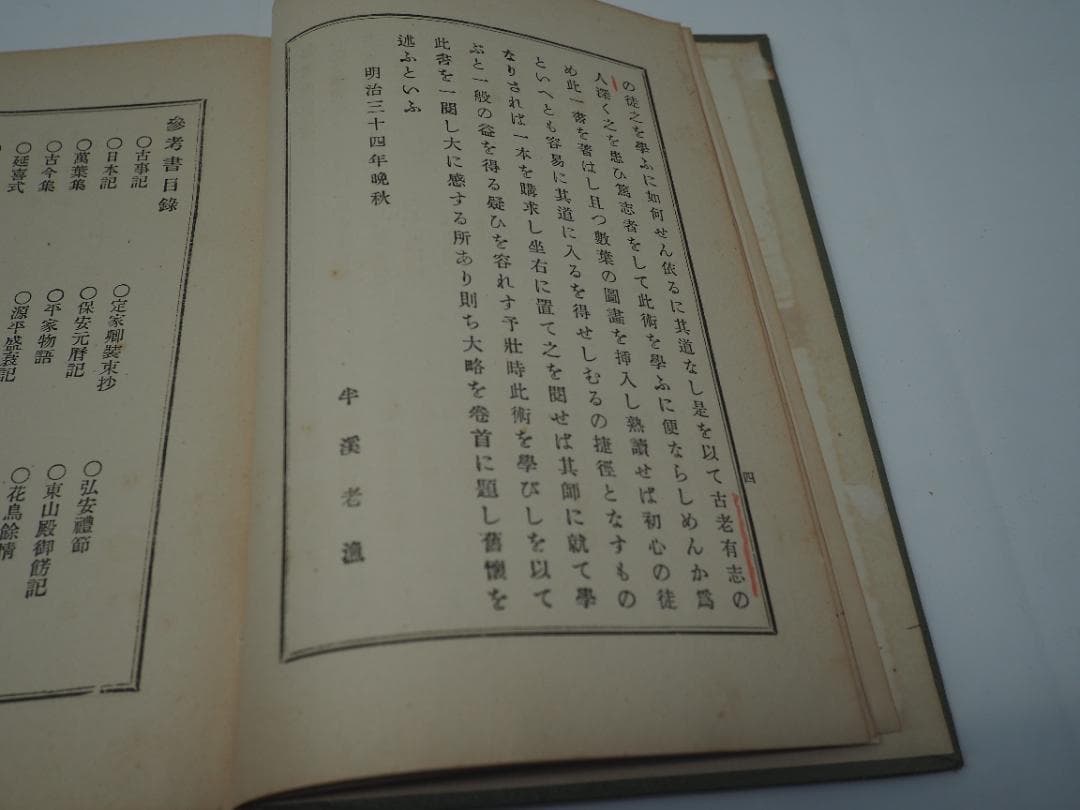 の徒之を學ふに如何せん依るに其道なし是を以て古老有志の
人深く之を患ひ篤志者をして此術を學ふに便ならしめんか爲
め此一書を著はし且つ數葉の圖畫を挿入し熟讀せば初心の徒
といへとも容易に其道に入るを得せしむるの捷徑となすもの
なりされば一本を購求し坐右に置て之を閲せば其師に就て學
ぶと一般の益を得る疑ひを容れす予壯時此術を學びしを以て
此書を一閲し大に感する所あり則ち大略を卷首に題し舊懷を
述ふといふ
明治三十四年晩秋
半溪老漁
四
參考書目錄
〇古事記
〇定家卿裝束抄
〇弘安禮節
〇日本記
〇保安元曆記
〇東山殿御餝記
〇萬葉集
〇平家物語
〇花鳥餘情
〇古今集
〇源平盛衰記
〇延喜式